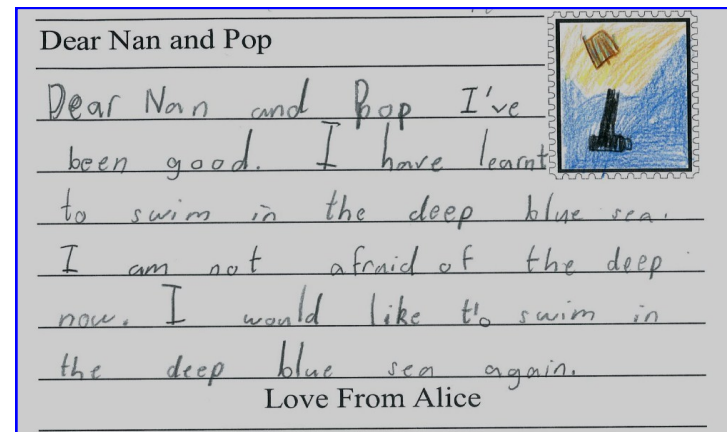 Dear Nan and Pop
Dear Nan and Pop I've
been good. I have learnt
to swim in the deep blue sea.
I am not afraid of the deep
now. I would like to swim in
the deep blue sea again.
Love From Alice